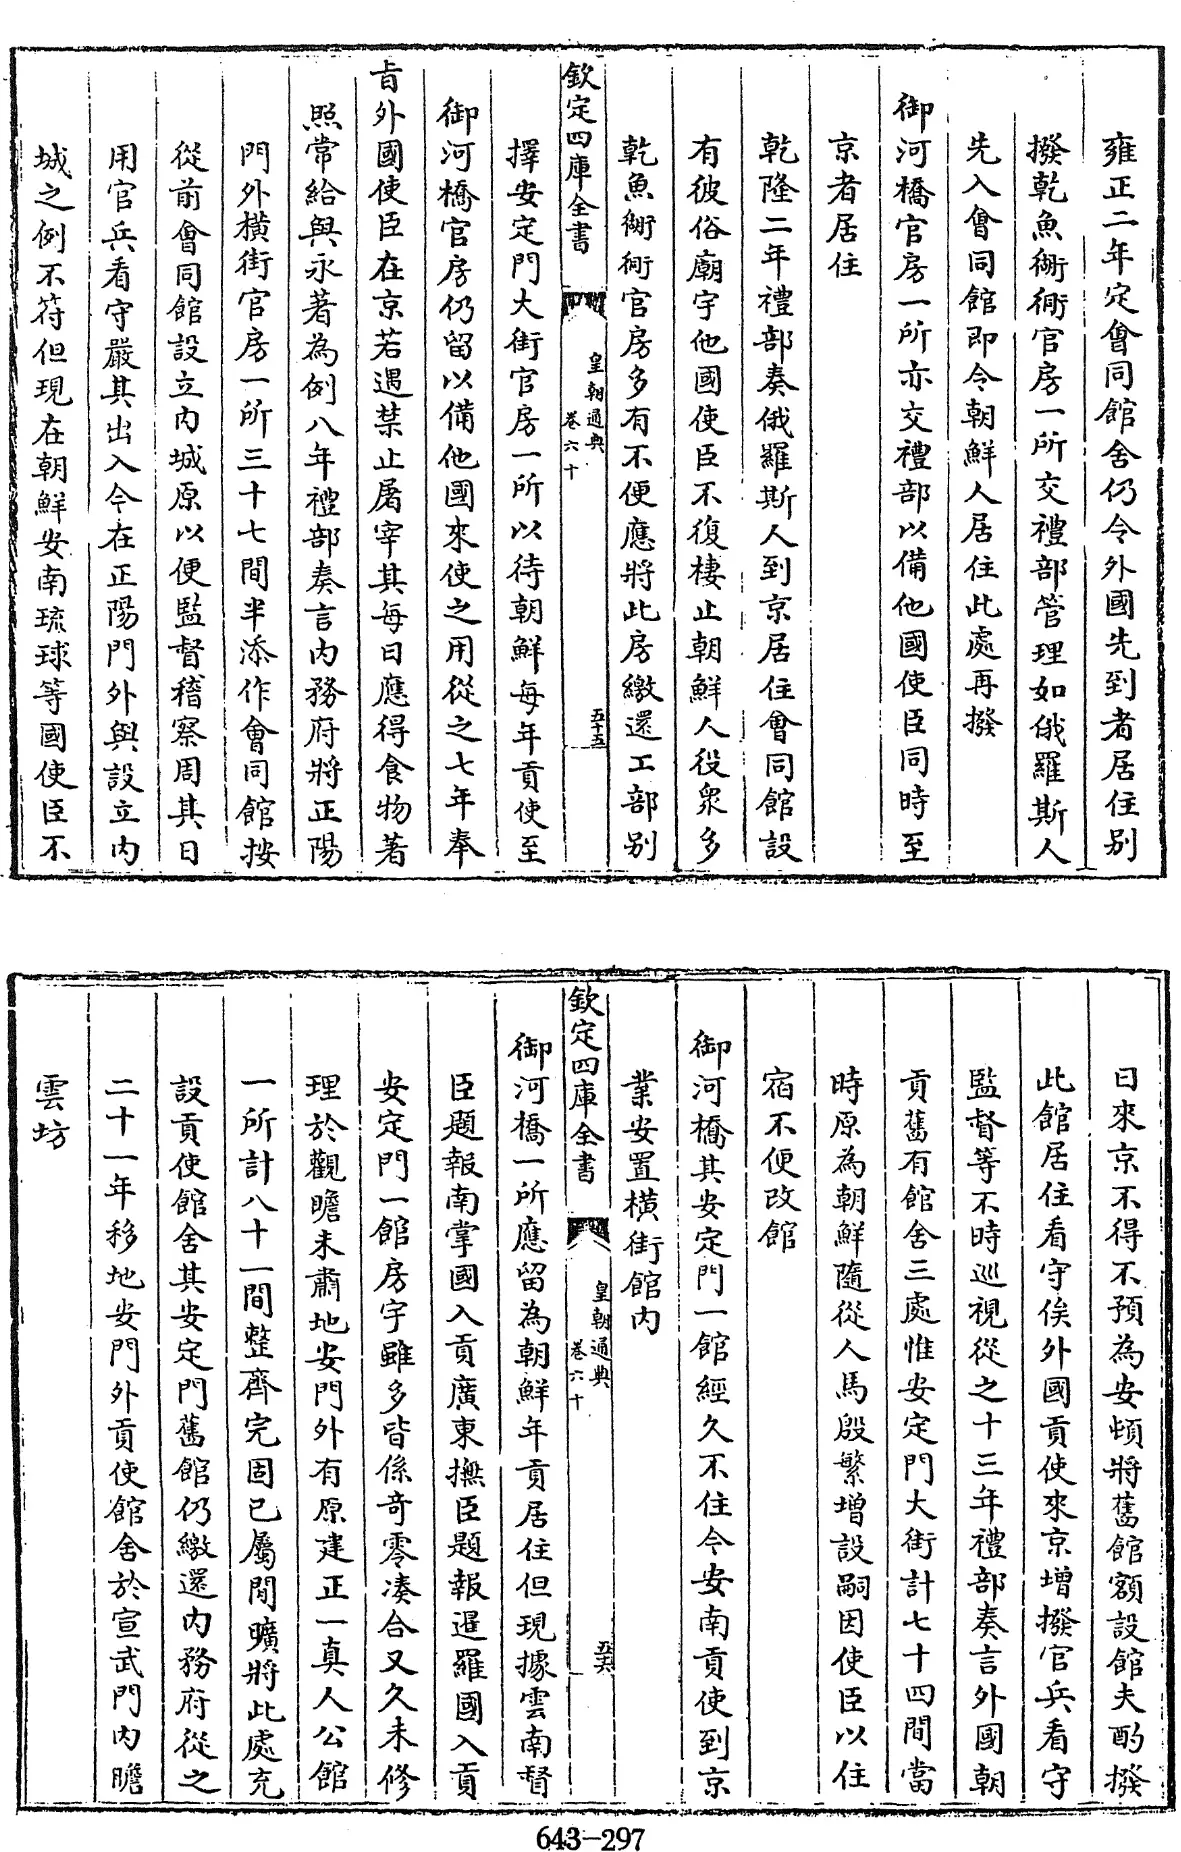 雍正二年定會同館舍仍令外國先到者居住別
撥乾魚衚衕官房一所交禮部管理如俄羅斯人
先入會同館即令朝鮮人居住此處再撥
御河橋官房一所亦交禮部以備他國使臣同時至
京者居住
乾隆二年禮部奏俄羅斯人到京居住會同館設
有彼俗廟宇他國使臣不復棲止朝鮮人役衆多
乾魚衚衕官房多有不便應將此房繳還工部别
欽定四庫全書
皇朝通典
卷六十
五十五
擇安定門大街官房一所以待朝鮮每年貢使至
御河橋官房仍留以備他國來使之用從之七年奉
㫖外國使臣在京若遇禁止屠宰其每日應得食物著
照常給與永著為例八年禮部奏言内務府將正陽
門外橫街官房一所三十七間半添作會同館按
從前會同館設立内城原以便監督稽察周其日
用官兵看守嚴其出入今在正陽門外與設立内
城之例不符但現在朝鮮安南琉球等國使臣不
日來京不得不預為安頓將舊館額設館夫酌撥
此館居住看守俟外國貢使來京增撥官兵看守
監督等不時巡視從之十三年禮部奏言外國朝
貢舊有館舍三處惟安定門大街計七十四間當
時原為朝鮮隨從人馬殷繁增設嗣因使臣以住
宿不便改館
御河橋其安定門一館經久不住今安南貢使到京
業安置橫街館内
欽定四庫全書
皇朝通典
卷六十
五十六
御河橋一所應留為朝鮮年貢居住但現據雲南督
臣題報南掌國入貢廣東撫臣題報暹羅國入貢
安定門一館房宇雖多皆係奇零湊合又久未修
理於觀瞻未肅地安門外有原建正一真人公館
一所計八十一間整齊完固已屬閒曠將此處充
設貢使館舍其安定門舊館仍繳還内務府從之
二十一年移地安門外貢使館舍於宣武門内瞻
雲坊
643-297